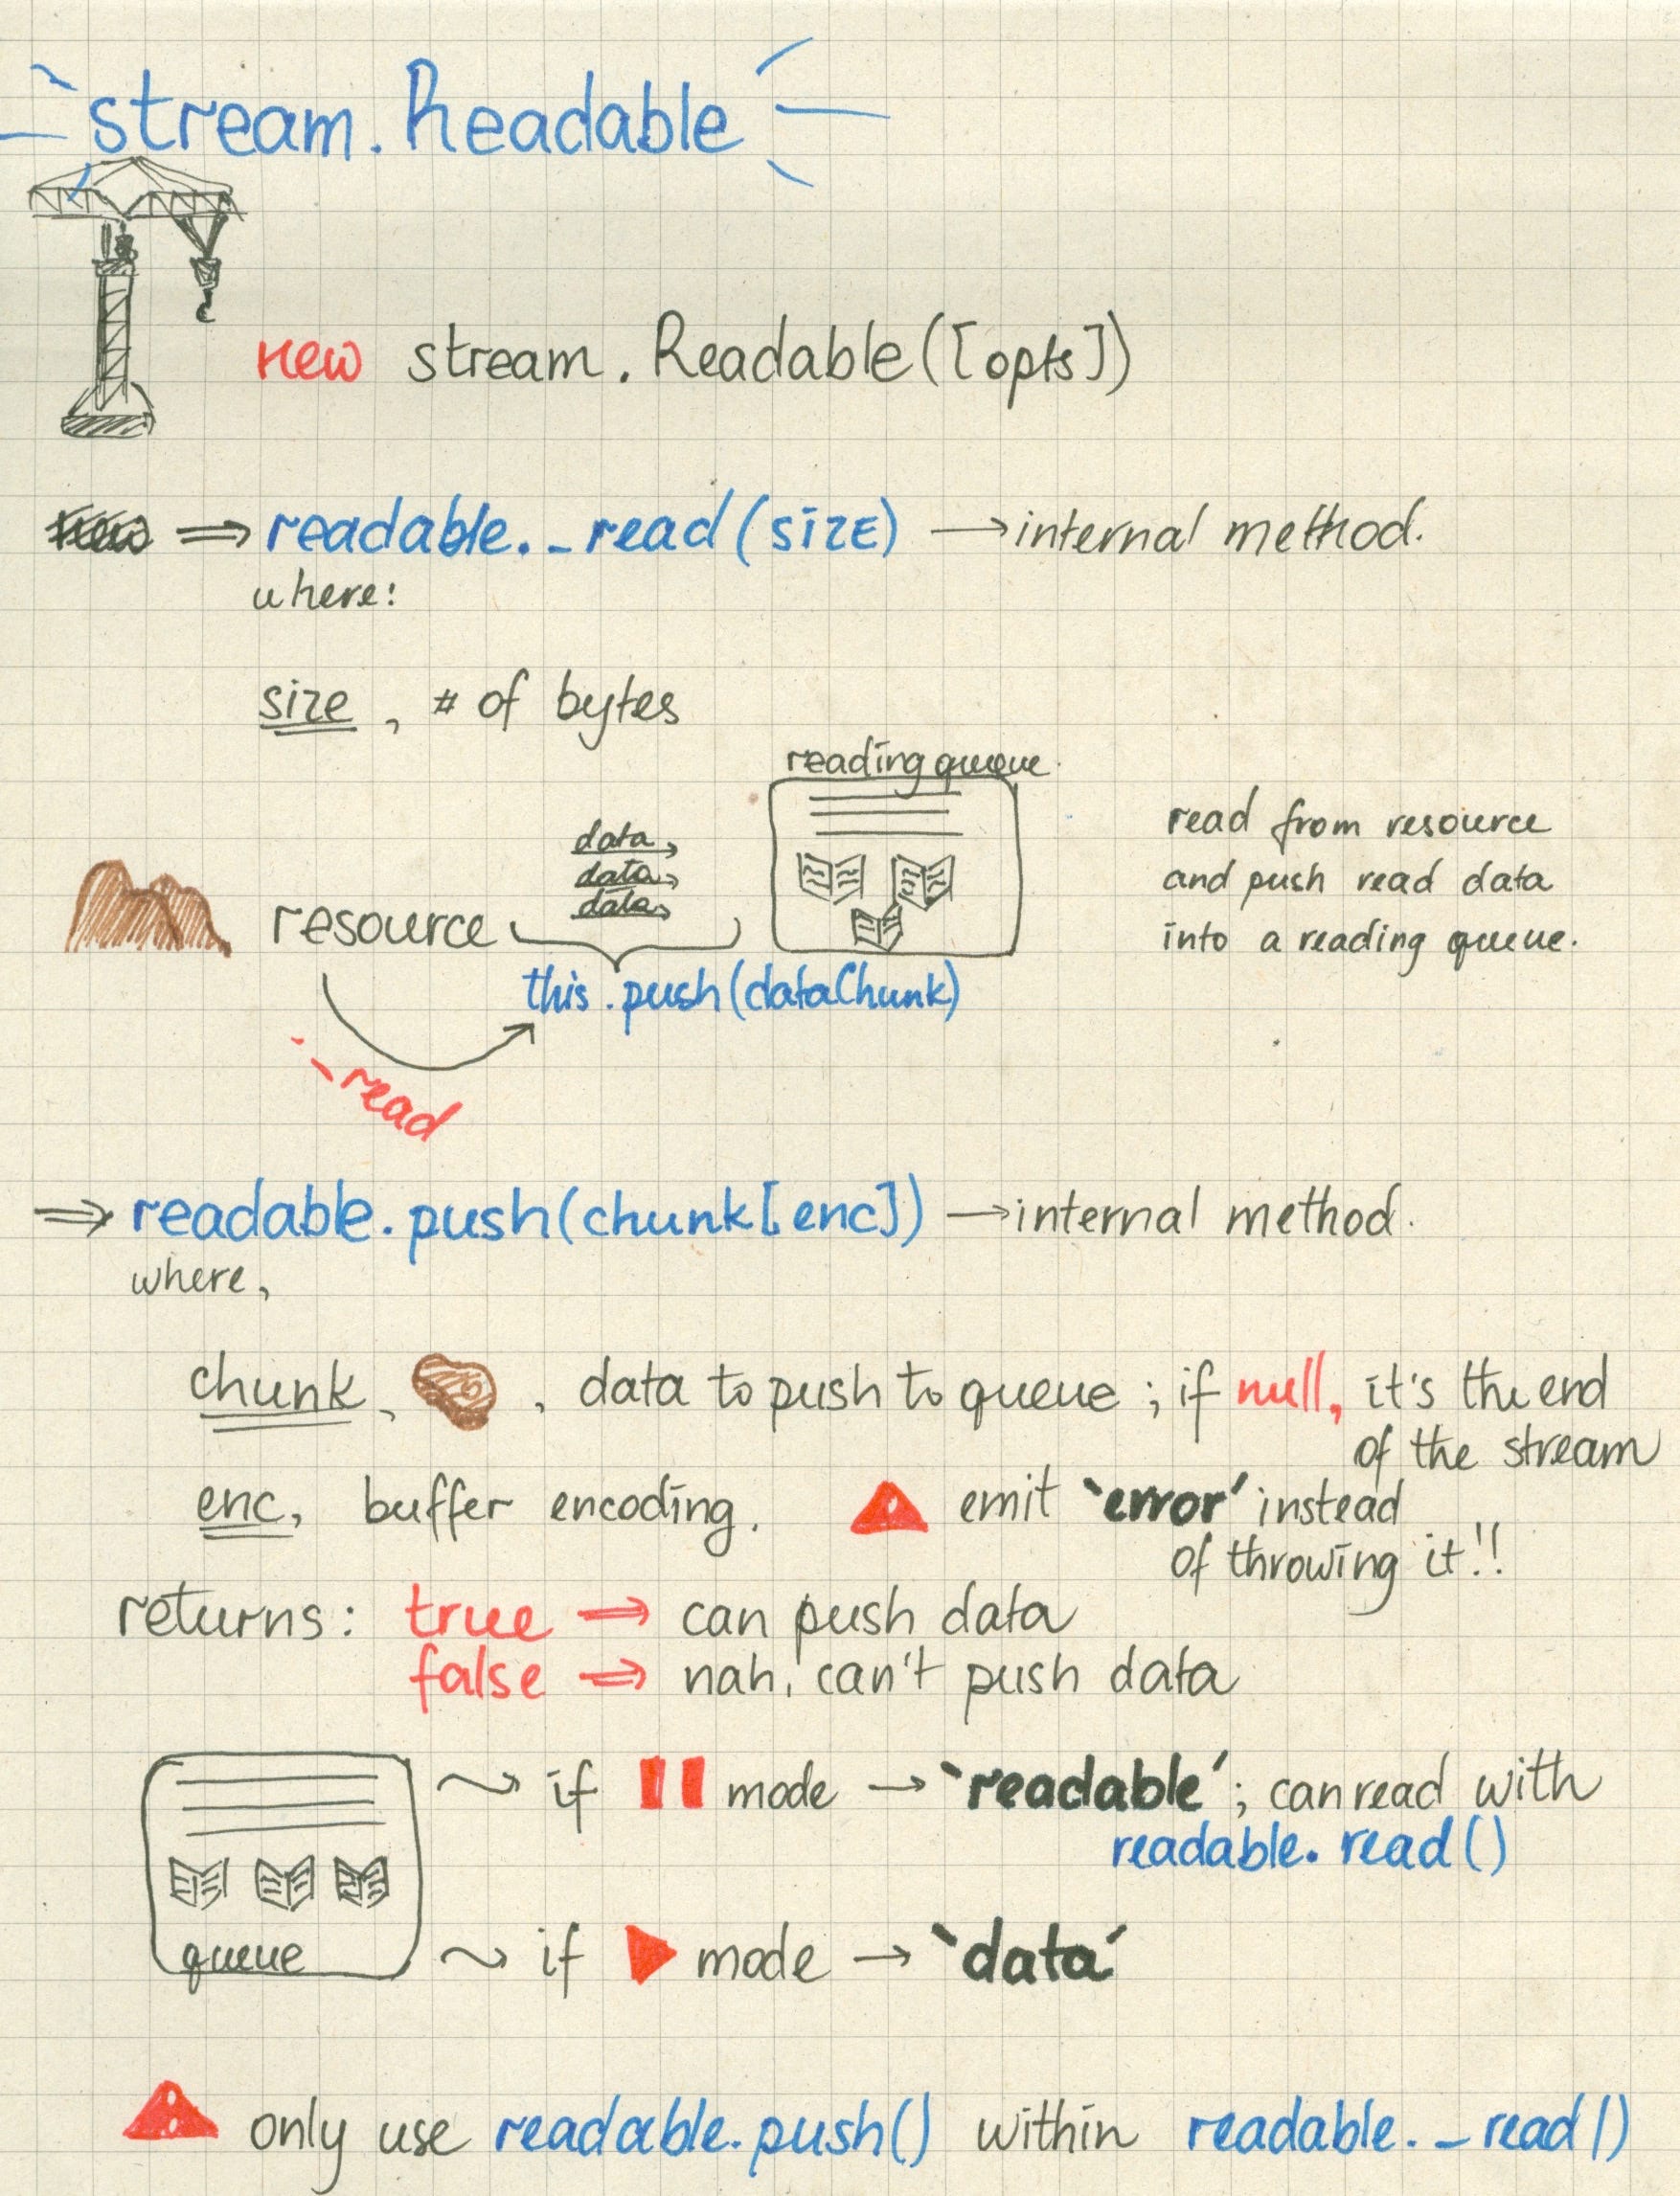 stream.Readable
new stream.Readable([opts])
⇒ readable._read(size) → internal method.
where:
size, # of bytes
reading queue.
data
data
data
resource
this.push(dataChunk)
read from resource
and push read data
into a reading queue.
_read
⇒ readable.push(chunk[enc]) → internal method.
where,
chunk, , data to push to queue; if null, it's the end
of the stream
enc, buffer encoding.
emit `error´ instead
of throwing it!!
returns: true ⇒ can push data
false ⇒ nah, can't push data
if mode → `readable´; can read with
readable.read()
queue
if mode → `data´
only use readable.push() within readable._read()